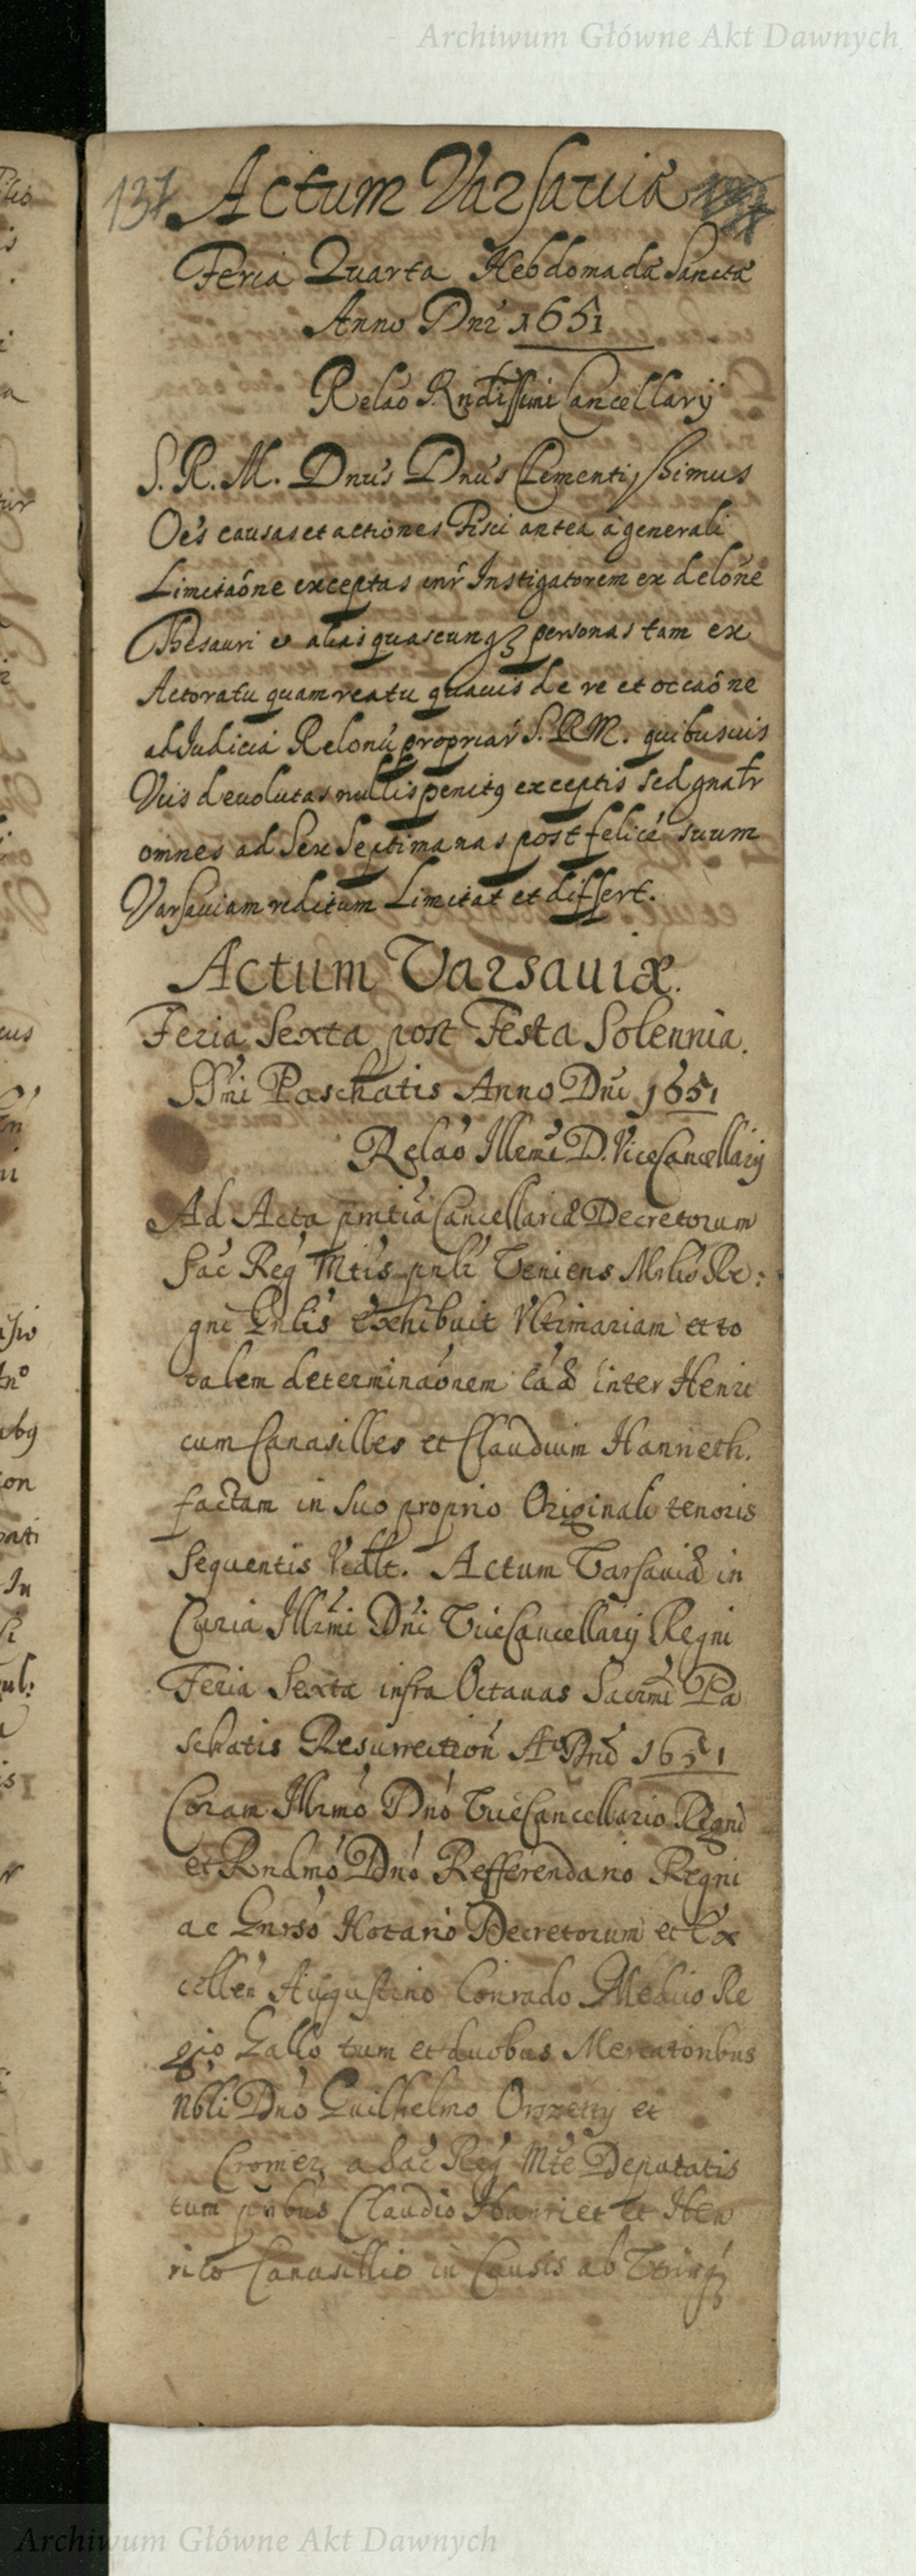 Archiwum Główne Akt Dawnych
137 Actum Varsaviæ
Feria Quarta Hebdomadæ Sanctæ
Anno Dni 1651
Relao Rndissimi Cancellarij
S. R. M. Dnus Dnus Clementissimus
Oes causas et actiones Fisci antea a generali
Limitaone exceptas inr Instigatorem ex delone
Thesauri et alias quascunq personas tam ex
Actoratu quam reatu quauis de re et occaone
ad Judicia Relonu propriar S. R M. quibusuis
Viis deuolutas nullis penitq exceptis sed gnatr
omnes ad Sex Septimanas post felice suum
Varsauiam reditum Limitat et differt.
Actum Varsauiæ.
Feria Sexta post Festa Solennia.
SSmi Paschatis Anno Dni 1651
Relao Illrmi D. ViceCancellarij
Ad Acta pntia Cancellariæ Decretorum
Sac Reg Mtis pnlr Veniens Mrlis Re:
gni Gnlis exhibuit Vltimariam et to
talem determinaonem caæ inter Henri
cum Canasilles et Claudium Hannieth.
factam in suo proprio Originali tenoris
sequentis Vedlt. Actum Varsauiæ in
Curia Illrmi Dni ViceCancellarij Regni
Feria Sexta infra Octauas Sacrmi Pa
schatis Resurrection Ao Dni 1651
Coram Illrmo Dno ViceCancellario Regni
et Rndmo Dno Refferendario Regni
ac Gnrso Notario Decretorum et Ex
cellen Augustino Conrado Medico Re
gio Gallo tum et duobus Mercatoribus
Nbli Dno Guilhelmo et
Cromer a Sac Reg Mte Deputatis
tum pntbus Claudio Hanriet et Hen
rico Canasillio in Causis ab
Archiwum Główne Akt Dawnych